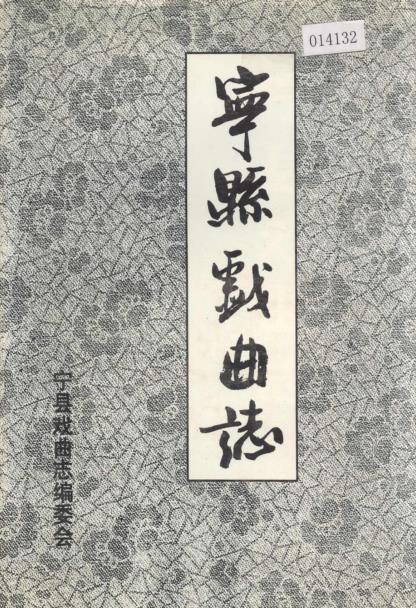 014132
寧縣戲曲誌
宁县戏曲志编委会